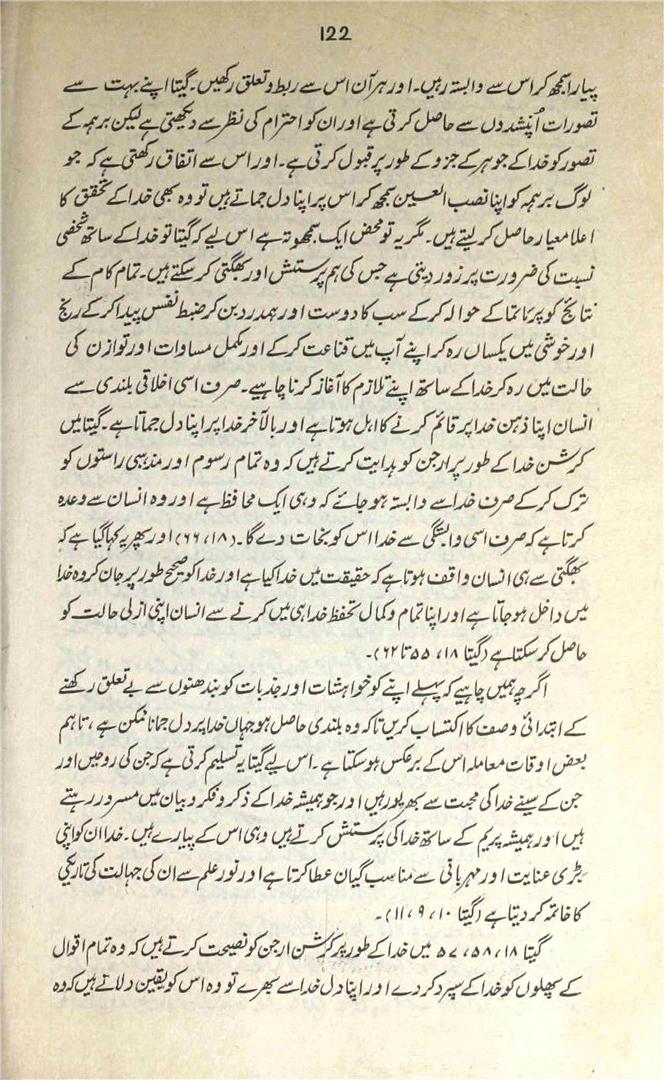 122
پیارا سمجھ کر اس سے وابستہ رہیں۔ اور ہر آن اس سے ربط و تعلق رکھیں۔ گیتا اپنے بہت سے
تصورات اُپنشدوں سے حاصل کرتی ہے اور ان کو احترام کی نظر سے دیکھتی ہے لیکن برہمہ کے
تصور کو خدا کے جوہر کے جزو کے طور پر قبول کرتی ہے۔ اور اس سے اتفاق رکھتی ہے کہ جو
لوگ برہمہ کو اپنا نصب العین سمجھ کر اس پر اپنا دل جماتے ہیں تو وہ بھی خدا کے تحقق کا
اعلا معیار حاصل کر لیتے ہیں۔ مگر یہ تو محض ایک سمجھوتہ ہے اس لیے کہ گیتا تو خدا کے ساتھ شخصی
نسبت کی ضرورت پر زور دیتی ہے جس کی ہم پرستش اور بھگتی کر سکتے ہیں۔ تمام کام کے
نتائج کو پرماتما کے حوالہ کر کے سب کا دوست اور ہمدرد بن کر ضبط نفس پیدا کر کے رنج
اور خوشی میں یکساں رہ کر اپنے آپ میں قناعت کر کے اور مکمل مساوات اور توازن کی
حالت میں رہ کر خدا کے ساتھ اپنے تلازم کا آغاز کرنا چاہیے۔ صرف اسی اخلاقی بلندی سے
انسان اپنا ذہن خدا پر قائم کرنے کا اہل ہوتا ہے اور بالآخر خدا پر اپنا دل جماتا ہے۔ گیتا میں
کرشن خدا کے طور پر ارجن کو ہدایت کرتے ہیں کہ وہ تمام رسوم اور مذہبی راستوں کو
ترک کر کے صرف خدا سے وابستہ ہو جائے کہ وہی ایک محافظ ہے اور وہ انسان سے وعدہ
کرتا ہے کہ صرف اسی وابستگی سے خدا اس کو نجات دے گا۔ (۱۸، ۶۶) اور پھر یہ کہا گیا ہے کہ
بھگتی سے ہی انسان واقف ہوتا ہے کہ حقیقت میں خدا کیا ہے اور خدا کو صحیح طور پر جان کر وہ خدا
میں داخل ہو جاتا ہے اور اپنا تمام و کمال تحفظ خدا ہی میں کرنے سے انسان اپنی ازلی حالت کو
حاصل کر سکتا ہے (گیتا ۱۸، ۵۵ تا ۶۲)۔
اگرچہ ہمیں چاہیے کہ پہلے اپنے کو خواہشات اور جذبات کو بندھنوں سے بے تعلق رکھنے
کے ابتدائی وصف کا اکتساب کریں تاکہ وہ بلندی حاصل ہو جہاں خدا پر دل جمانا ممکن ہے، تاہم
بعض اوقات معاملہ اس کے برعکس ہو سکتا ہے۔ اس لیے گیتا یہ تسلیم کرتی ہے کہ جن کی روحیں اور
جن کے سینے خدا کی محبت سے بھرپور ہیں اور جو ہمیشہ خدا کے ذکر و فکر و بیان میں مسرور رہتے
ہیں اور ہمیشہ پریم کے ساتھ خدا کی پرستش کرتے ہیں وہی اس کے پیارے ہیں۔ خدا ان کو اپنی
بڑی عنایت اور مہربانی سے مناسب گیان عطا کرتا ہے اور نور علم سے ان کی جہالت کی تاریکی
کا خاتمہ کر دیتا ہے (گیتا ۱۰، ۹، ۱۱)۔
گیتا ۱۸، ۵۸، ۵۷ میں خدا کے طور پر کرشن ارجن کو نصیحت کرتے ہیں کہ وہ تمام اقوال
کے پھلوں کو خدا کے سپرد کر دے اور اپنا دل خدا سے بھرے تو وہ اس کو یقین دلاتے ہیں کہ وہ